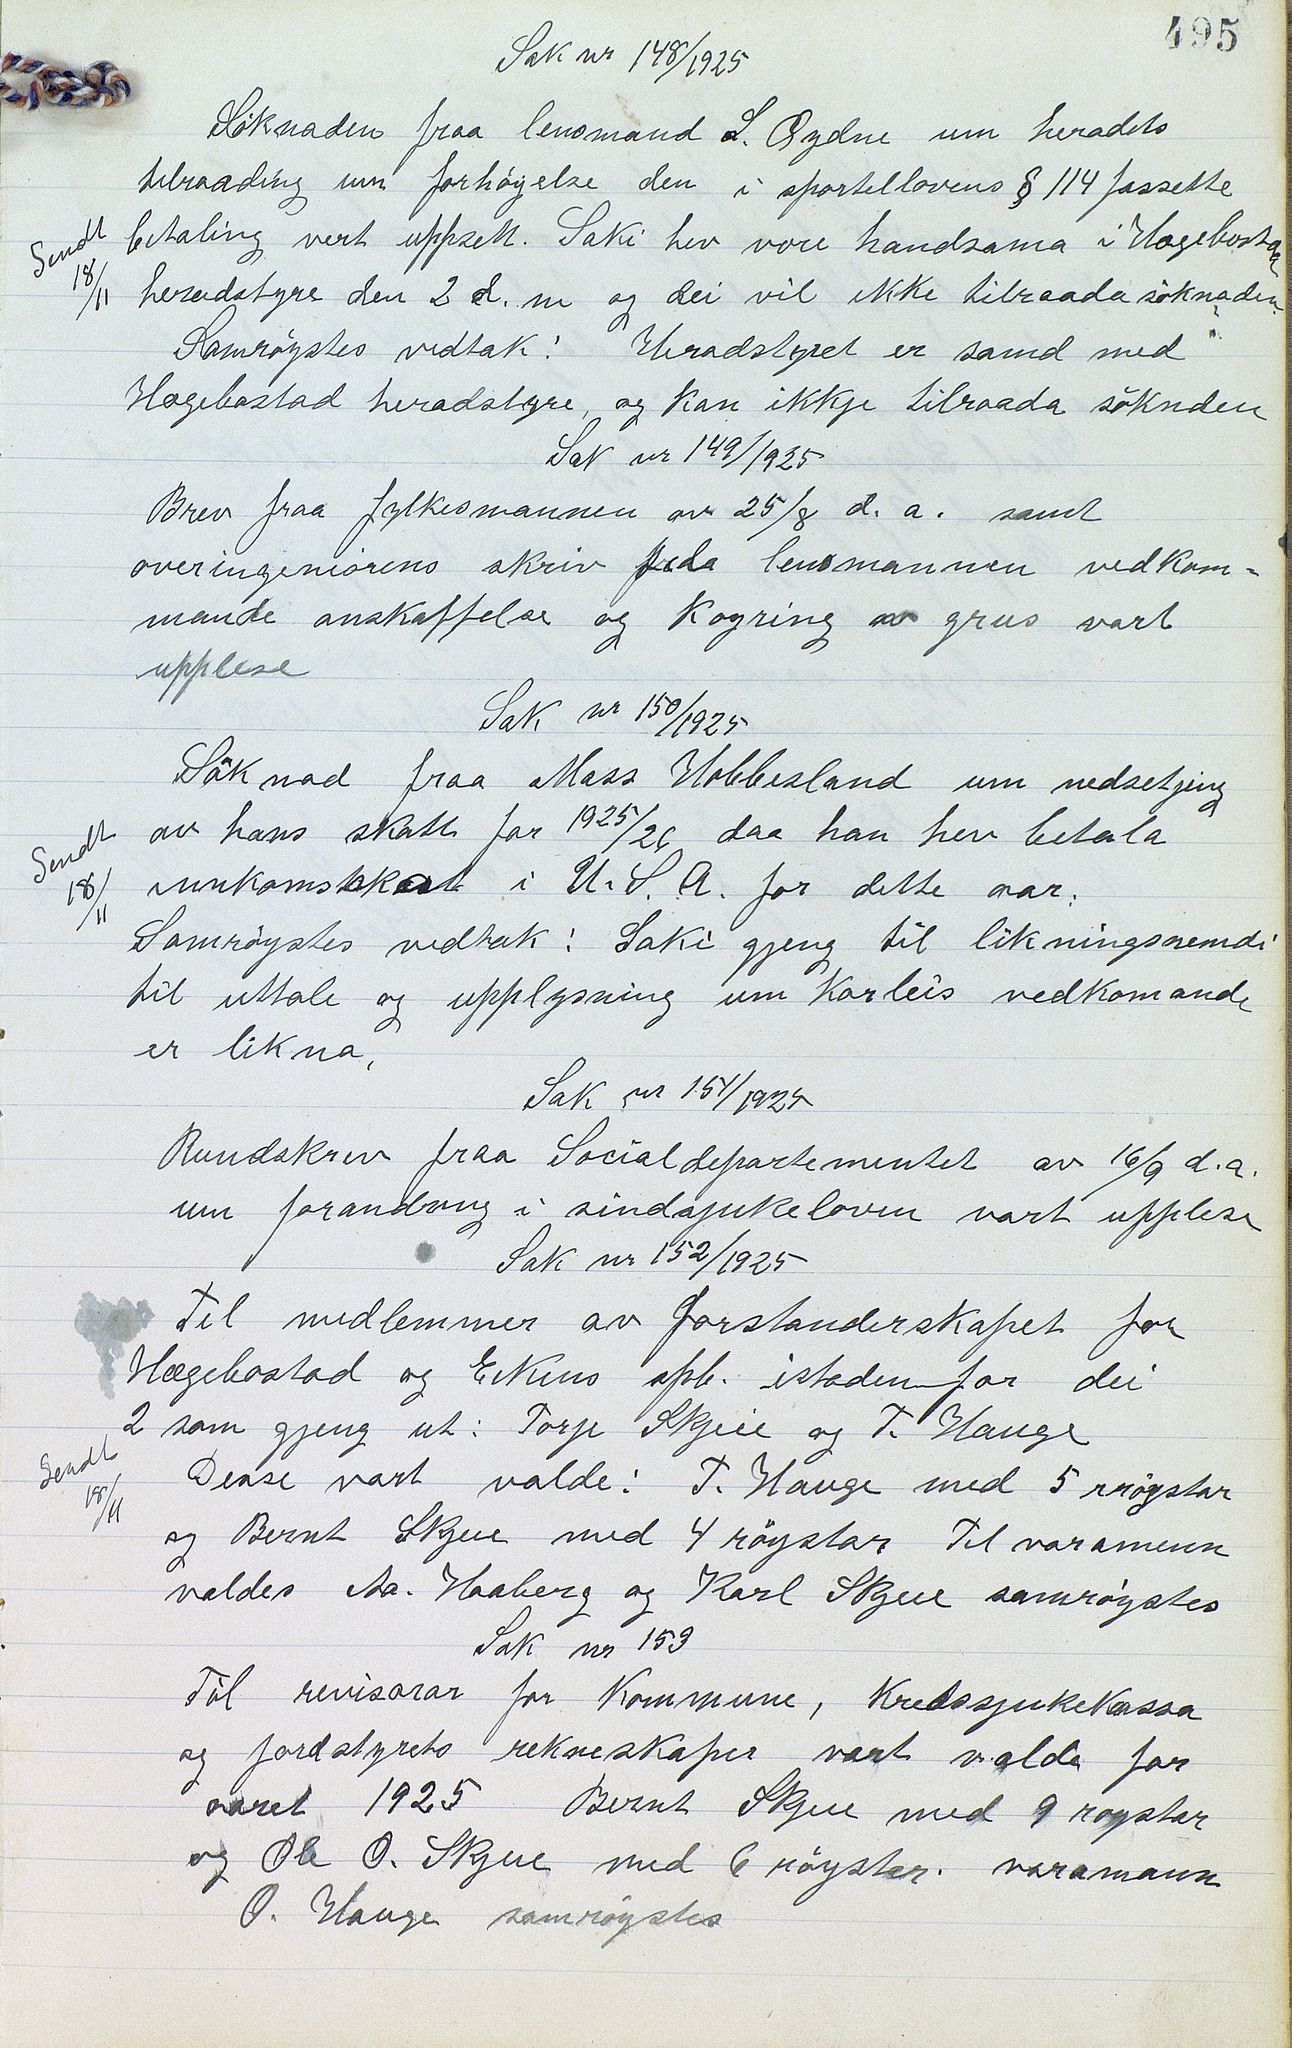 495
Sak nr 148/1925
Söknaden fraa lensmand S. Rydne um heradets
tilraading um forhöyelse den i sportellovens § 114 fassette
betaling vert uppsett. Saki hev vore handsama i Hægebostad
Sendt 18/11
heradstyre den 2 d. m og dei vil ikke tilraada söknaden.
Samröystes vedtak! Heradstyret er samd med
Hægebostad heradstyre, og kan ikkje tilraada söknden
Sak nr 149/1925
Brev fraa fylkesmannen av 25/8 d. a. samt
overingeniörens skriv fraa lensmannen vedkom-
mande anskaffelse og koyring av grus vart
upplese
Sak nr 150/1925
Söknad fraa Mass Hobbesland um nedsetjing
av hans skatt for 1925/26 daa han hev betala
Sendt 18/11
innkomstskat i U. S. A. for dette aar.
Samröystes vedtak! Saki gjeng til likningsnemdi
til uttale og upplysning um korleis vedkomande
er likna,
Sak nr 151/1925
Rundskriv fraa Socialdepartementet av 16/9 d.a.
um forandring i sindsjukeloven vart upplese
Sak nr 152/1925
Til medlemmer av forstanderskapet for
Hægebostad og Eikens spb. istadenfor dei
2 som gjeng ut: Torje Skjeie og T. Hauge
Sendt 18/11
Desse vart valde! T. Hauge med 5 röystar
og Bernt Skjeie med 4 röystar Til varamenn
valdes Aa. Haaberg og Karl Skjeie samröystes
Sak nr 153
Til revisorar for kommune, kredssjukekassa
og fordstyrets rekneskaper vart valde for
aaret 1925 Bernt Skjeie med 9 röystar
og Ole O. Skjeie med 6 röystar. varamann
O. Hauge samröystes